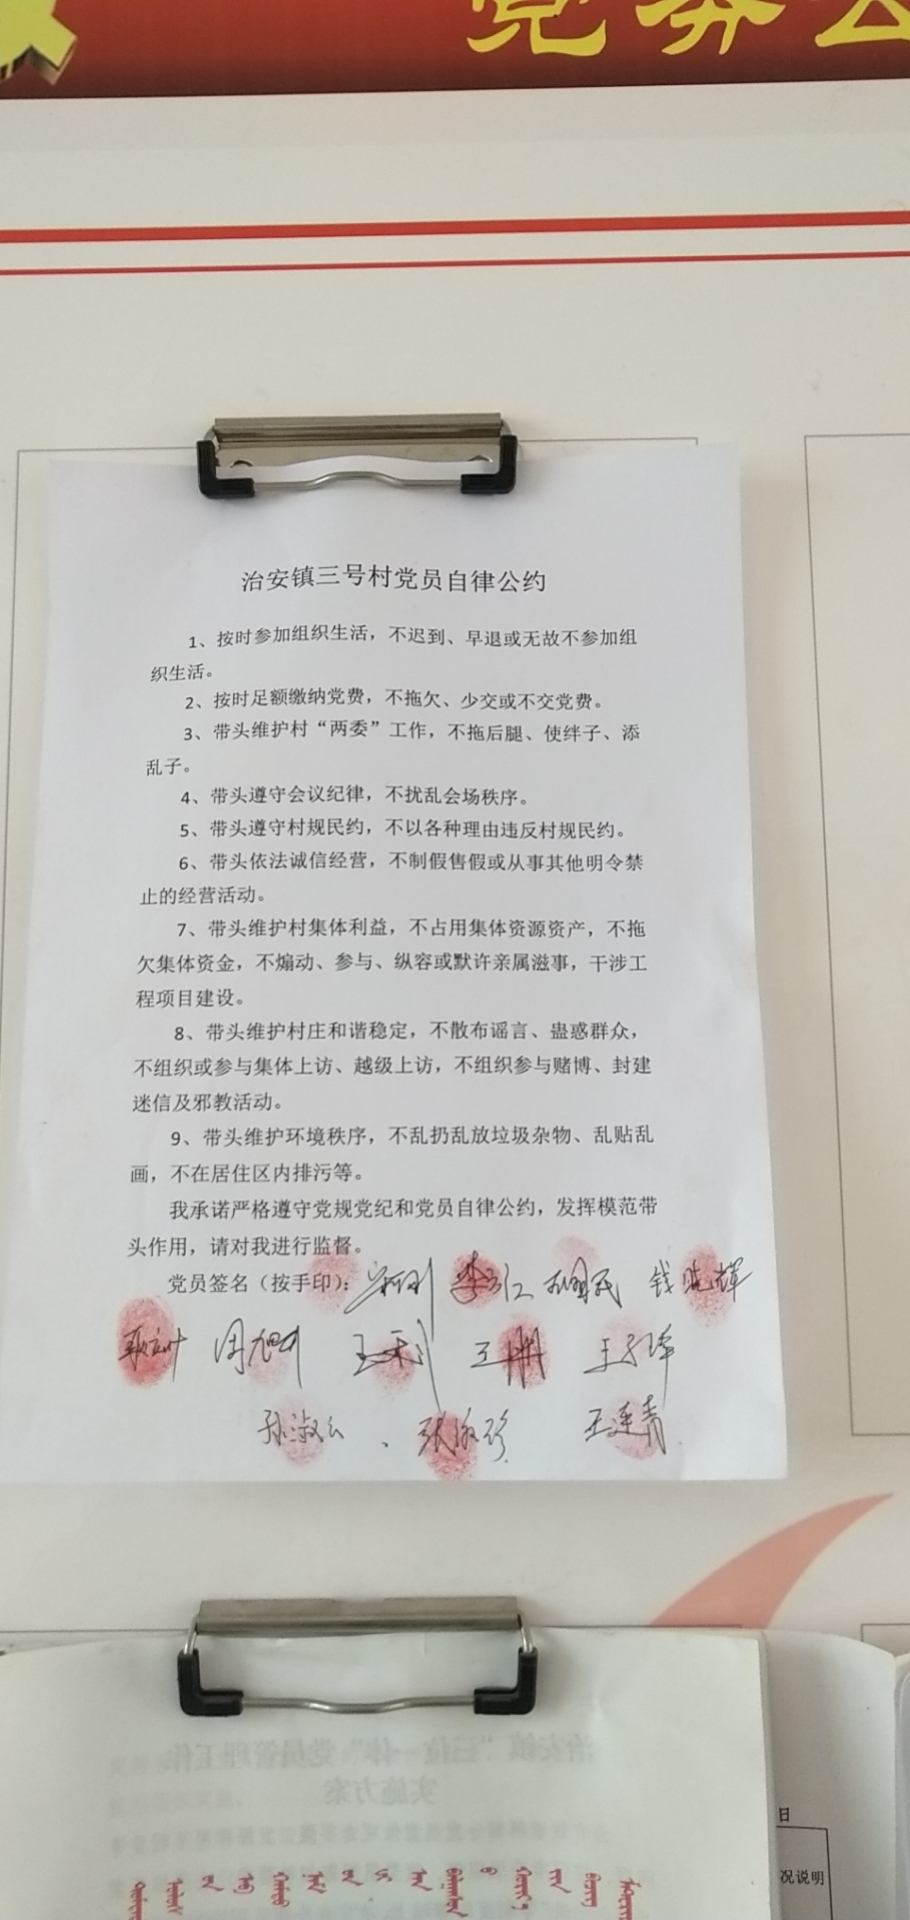 党务公
治安镇三号村党员自律公约
1、按时参加组织生活，不迟到、早退或无故不参加组
织生活。
2、按时足额缴纳党费，不拖欠、少交或不交党费。
3、带头维护村“两委”工作，不拖后腿、使绊子、添
乱子。
4、带头遵守会议纪律，不扰乱会场秩序。
5、带头遵守村规民约，不以各种理由违反村规民约。
6、带头依法诚信经营，不制假售假或从事其他明令禁
止的经营活动。
7、带头维护村集体利益，不占用集体资源资产，不拖
欠集体资金，不煽动、参与、纵容或默许亲属滋事，干涉工
程项目建设。
8、带头维护村庄和谐稳定，不散布谣言、蛊惑群众，
不组织或参与集体上访、越级上访，不组织参与赌博、封建
迷信及邪教活动。
9、带头维护环境秩序，不乱扔乱放垃圾杂物、乱贴乱
画，不在居住区内排污等。
我承诺严格遵守党规党纪和党员自律公约，发挥模范带
头作用，请对我进行监督。
党员签名（按手印）： 钱晓辉
王利 王朋
王连青
治安镇“三位一体”党员管理工作
实施方案
日
况说明